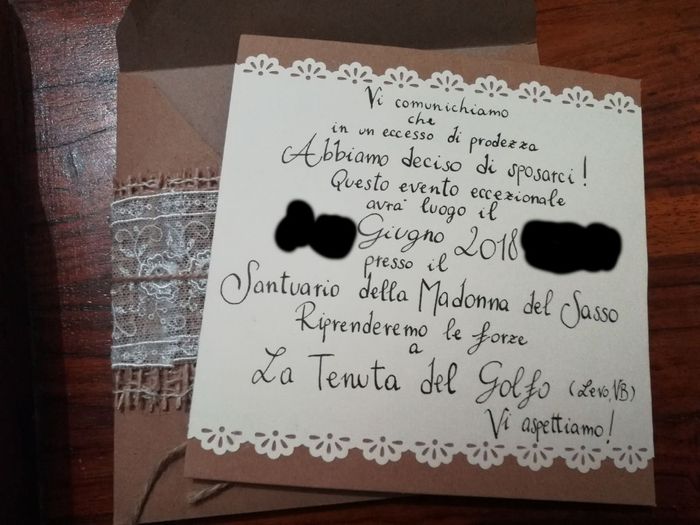 Vi comunichiamo
che
in un eccesso di prodezza
Abbiamo deciso di sposarci!
Questo evento eccezionale
avrà luogo il
Giugno 2018
presso il
Santuario della Madonna del Sasso
Riprenderemo le forze
a
La Tenuta del Golfo (Levo, VB)
Vi aspettiamo!